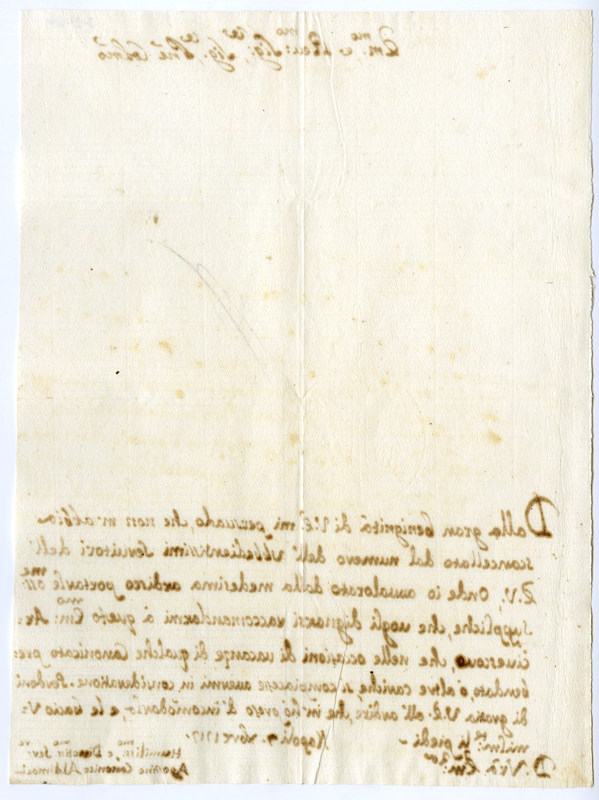 Em.mo e Rev.mo Sig.re Sig.re Pñe Colmo
Dalla gran benignità di V. E. mi persuado, che non m'abbia
scancellato dal numero dell' ubbedientissimi Servitori dell'
E. V., Onde io avvalorato dalla medesima ardisco portarle
suppliche, che vogli dignarsi raccomandarmi à questo Em.mo Ar=
civescovo che nelle occasioni di vacanze di qualche Canonicato pre=
bendato, ò altre cariche si compiacesse avermi in considerazione. Perdoni
di grazia V. E. all' ardire, che m'hò preso d'incomodarlo, e le bacio u=
milm.te li piedi. Napoli 9. Xbre 1717
D. Vrã Em.za
Humiliss.mo e Devotiss.mo Ser.re
Agostino Canonico